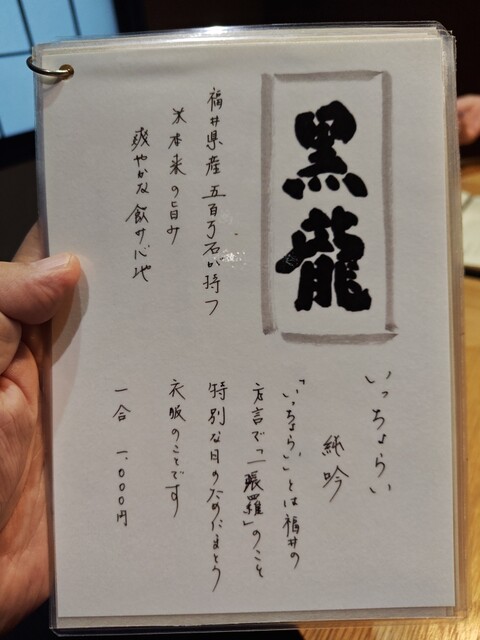 黒龍
福井県産 五百万石が持つ
米本来の旨み
爽やかな飲み心地
いっちょらい
純吟
「いっちょらい」とは福井の
方言で「一張羅」のこと
特別な日のためにまとう
衣服のことです
一合 1,000円